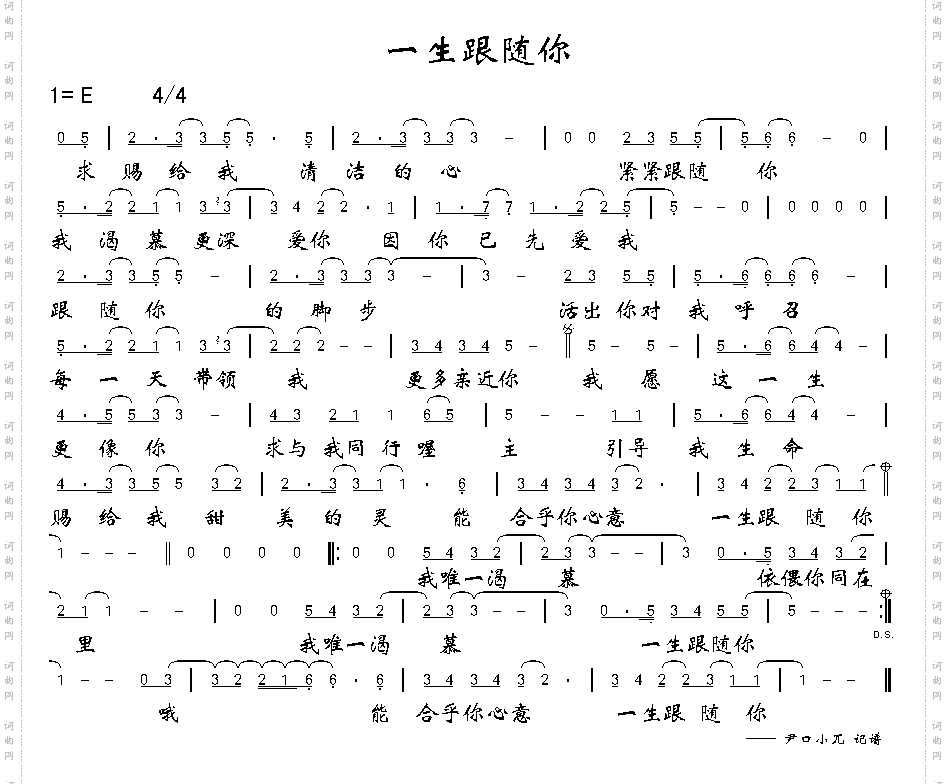 一生跟随你
1= E 4/4
0 5 | 2 · 3 3 5 5 · 5 | 2 · 3 3 3 3 - | 0 0 2 3 5 5 | 5 6 6 - 0 |
求 赐 给 我 清 洁 的 心 紧紧跟随 你
5 · 2 2 1 1 3 3 3 | 3 4 2 2 · 1 | 1 · 7 7 1 · 2 2 5 | 5 - - 0 | 0 0 0 0 |
我 渴 慕 更深 爱你 因 你 已 先 爱 我
2 · 3 3 5 5 - | 2 · 3 3 3 3 - | 3 - 2 3 5 5 | 5 · 6 6 6 6 - |
跟 随 你 的 脚 步 活出 你对 我 呼 召
5 · 2 2 1 1 3 3 3 | 2 2 2 - - | 3 4 3 4 5 - 5 - 5 - | 5 · 6 6 4 4 - |
每 一 天 带领 我 更多亲近你 我 愿 这 一 生
4 · 5 5 3 3 - | 4 3 2 1 1 6 5 | 5 - - 1 1 | 5 · 6 6 4 4 - |
更 像 你 求与 我同 行 喔 主 引导 我 生 命
4 · 3 3 5 5 3 2 | 2 · 3 3 1 1 · 6 | 3 4 3 4 3 2 · | 3 4 2 2 3 1 1
赐 给 我 甜 美 的 灵 能 合乎你心意 一生跟 随 你
1 - - - 0 0 0 0 : 0 0 5 4 3 2 | 2 3 3 - - | 3 0 · 5 3 4 3 2 |
我唯一渴 慕 依偎你同在
2 1 1 - - | 0 0 5 4 3 2 | 2 3 3 - - | 3 0 · 5 3 4 5 5 | 5 - - - :
D.S.
里 我唯一渴 慕 一生跟随你
1 - - 0 3 | 3 2 2 1 6 6 · 6 | 3 4 3 4 3 2 · | 3 4 2 2 3 1 1 | 1 - -
哦 能 合乎你心意 一生跟 随 你
—— 尹口小兀 记谱
词曲网